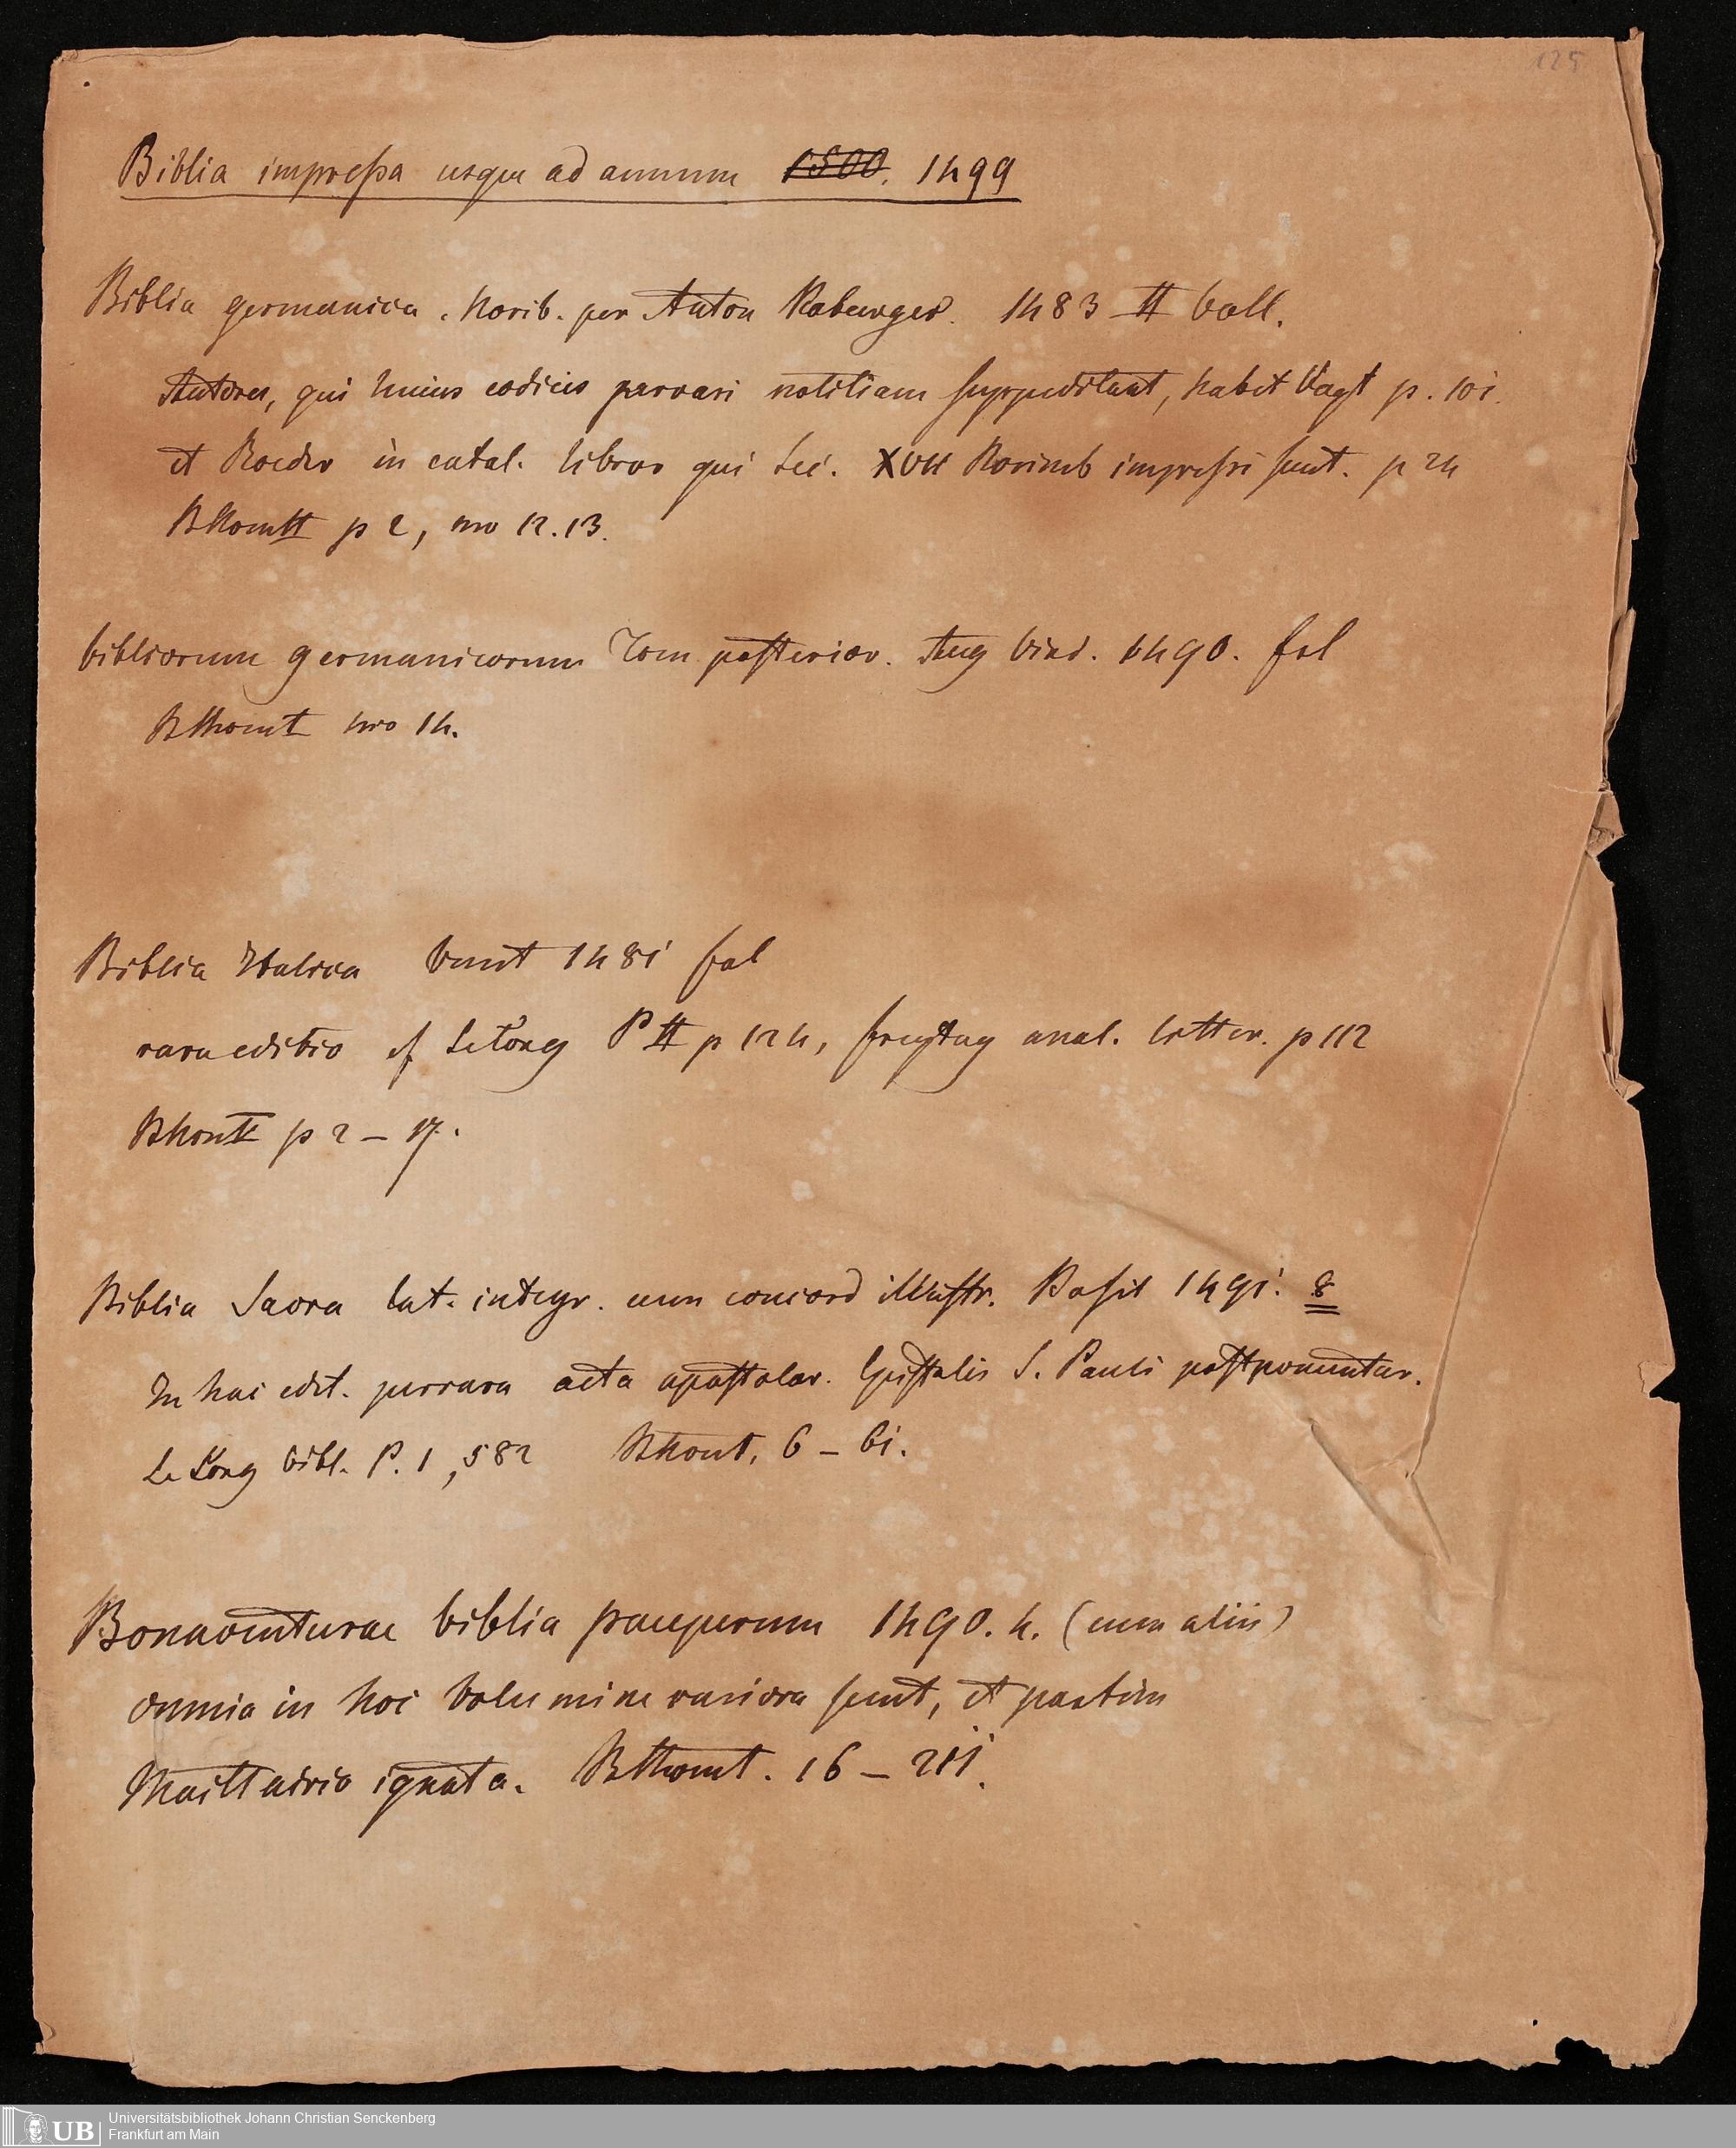 125
Biblia impressa usque ad annum 1500. 1499
Biblia germanica. Norib. per Anton Koburger. 1483 II Voll.
Autores, qui huius codicis perrari notitiam suppeditant, habet Vogt p. 101.
et Roeder in catal. libror qui Sec. XVII Norimb impressi sunt. p 24
p 2, nro 12.13.
bibliorum germanicorum Tom posterior. Aug Vind. 1490. fol
nro 14.
Biblia Italica Venet 1481 fol
rara editio cf LeLong P II p 124, freytag anal. litter. p 112
p 2 – 17.
Biblia Sacra lat. integr. cum concord illustr. Basil 1491. 8
In hac edit. perrara acta apostolor. Epistolis S. Pauli postponuntur.
Le Long bibl. P. 1, 582 6 – 61.
Bonaventurae biblia pauperum 1490. 4. (cum aliis)
omnia in hoc Volumine rariora sunt, et partim
Maittairio ignota. 16 – 211.
UB
Universitätsbibliothek Johann Christian Senckenberg
Frankfurt am Main